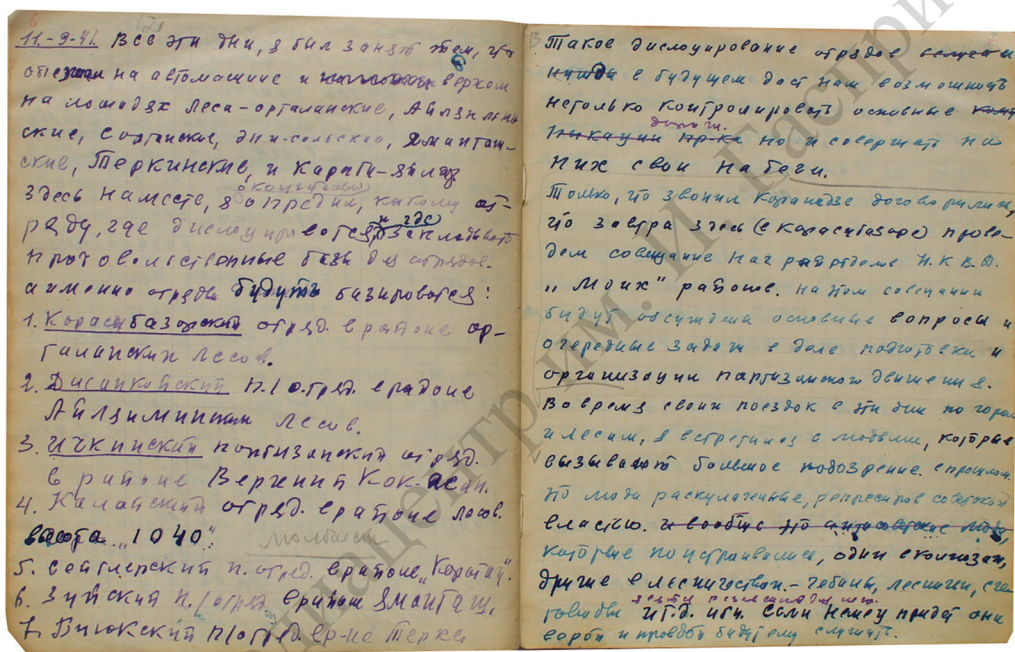 11.-9-41. Все эти дни, я был занят тем, что
на автомашине и верхом
на лошадях Леса-орталанские,
ские, эни-сольское,
ские, Теркинские, и Караби-яйлу
окончательно
Здесь на месте, я определил, какому от-
и где
ряду, где дислоцироватся, закладывать
продовольственные базы для отрядов.
а именно отряды будуть базироватся:
1. Карасубазарский отряд. в районе ор-
таланских лесов.
2. п/отряд. в районе
лесов.
3. Ичкинский партизанский отряд.
в районе Верхний Кок-асан.
4. Колайский отряд. в районе лесов.
высота "1040".
5. Сейтлерский п. отряд. в районе
6. Зуйский п./отряд. в районе Яманташ.
7. Биюкский п/отряд. в р-не Терке
Такое дислоцирование отрядов
в будущем даст нам возможность
нетолько контролировать основные
дороги.
но и совершать на
них свои набеги.
Только, что звонил договорились,
что завтра здесь (в Карасубазаре) прове-
дем совещание нач райотделов Н.К.В.Д.
"моих" районов. на этом совещании
будут обсуждены основные вопросы и
очередные задачи в деле подготовки и
организации партизанского движения.
Во время своих поездок в эти дни по горам
и лесам, я встретился с людьми, которые
вызывают большое подозрение. в прошлом
это люди раскулаченные, советской
властью. и вообще это антисоветские люди
которые поустраивались, одни в колхозах,
другие в лесничествах - чабаны, лесники,
и т.д. Если немец придет они
верой и правдой будут ему служить.